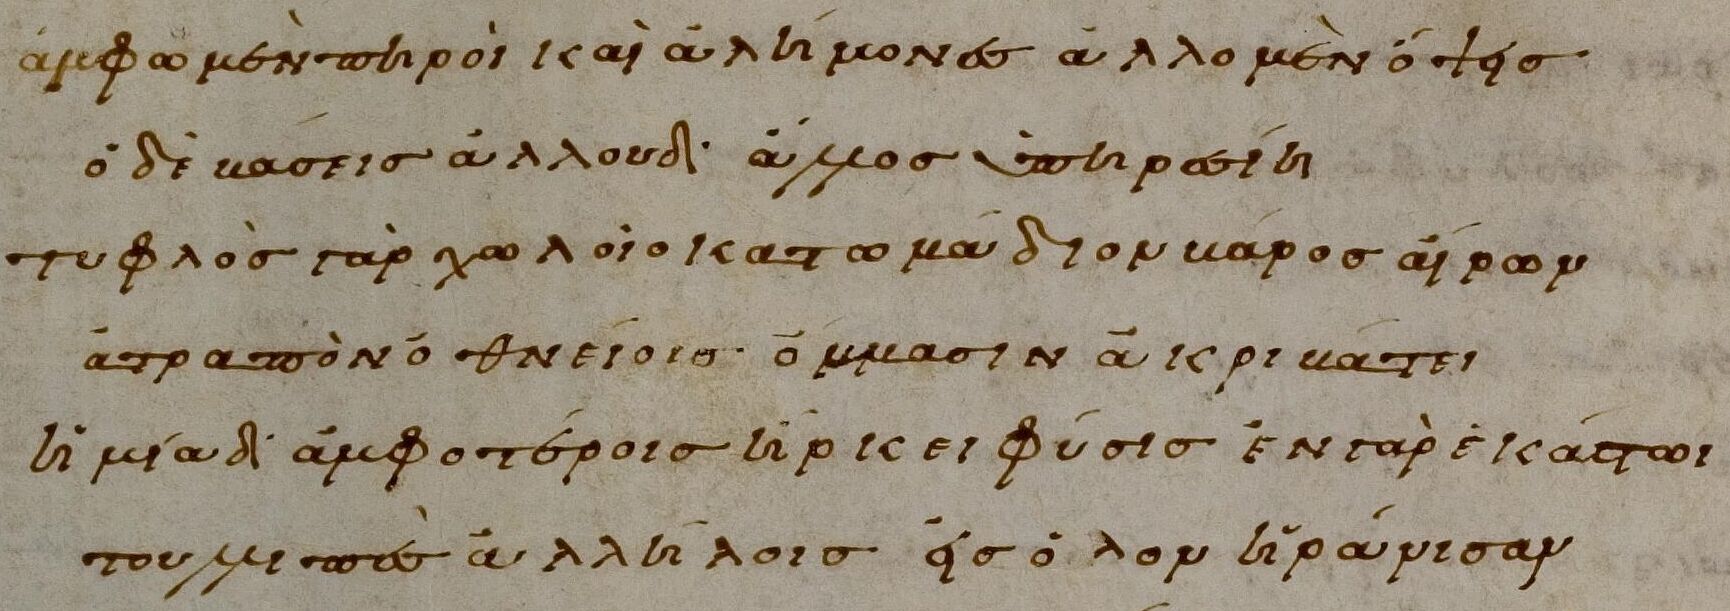 ἄμφω μὲν πηροὶ καὶ ἀλήμονες ἀλλο μὲν ὄψεσ
ὁ δὲ βάσεις ἄλλου δ' ἄλλος ὑπηρεσίη
τυφλὸς γὰρ χωλοῖο κατωμάδιον βάρος αἴρων
ἀτραπὸν ὀθνείοις ὄμμασιν ἀκριβάτει
ἡ μία δ' ἀμφοτέροις ἤρκει φύσις ἐν γὰρ ἑκάστωι
τουλλιπὲς ἀλλήλοις ἐς ὅλον ἠράνισαν